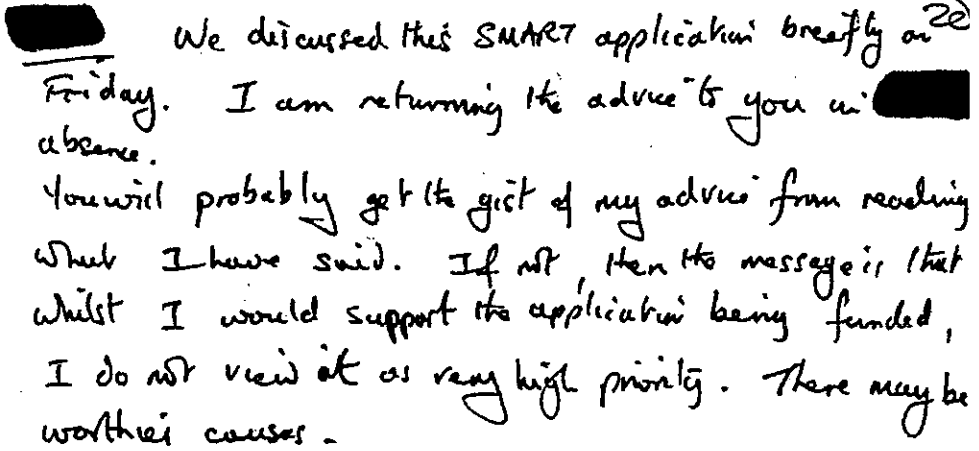 We discussed this SMART application breefly on
Friday. I am returning the advice to you in
absence.
You will probably get the gist of my advice from reading
what I have said. If not, then the message is that
whilst I would support the application being funded,
I do not view it as very high priority. There may be
worthier causes.